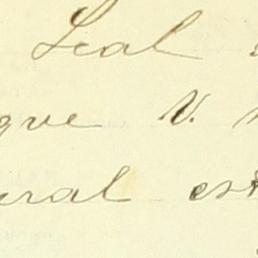 Leal
que V.
ural est